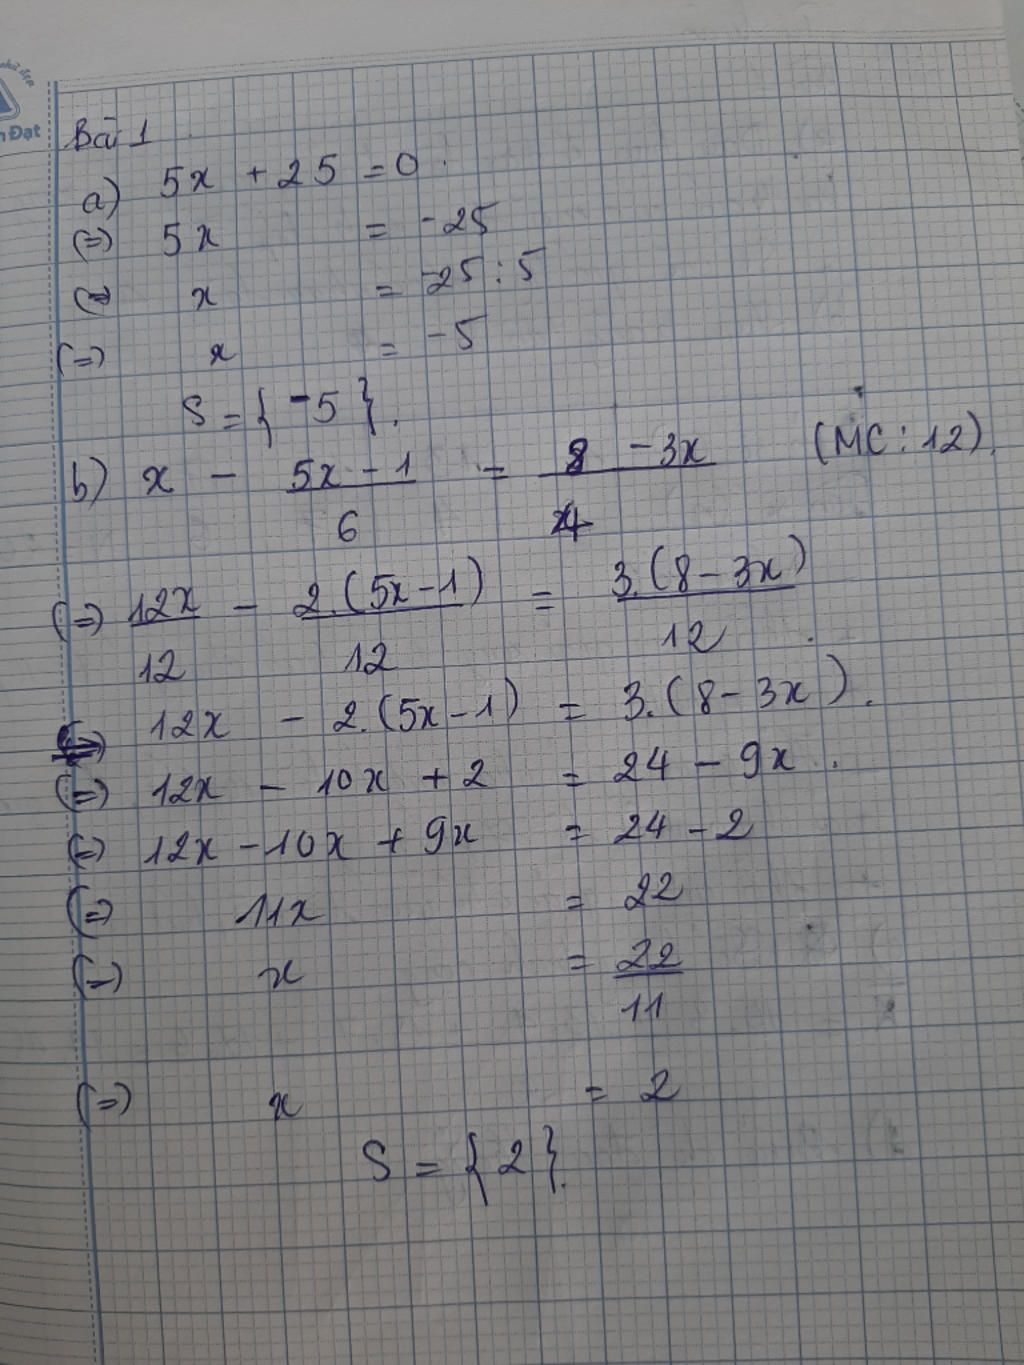 Đạt
Bài 1
a) 5x + 25 = 0
(=) 5x = -25
(=) x = -25 : 5
(=) x = -5
S = { -5 }.
b) x - (5x - 1)/6 = (8 - 3x)/4 (MC : 12).
(=) 12x/12 - 2.(5x-1)/12 = 3.(8-3x)/12
(=) 12x - 2.(5x-1) = 3.(8-3x).
(=) 12x - 10x + 2 = 24 - 9x.
(=) 12x - 10x + 9x = 24 - 2
(=) 11x = 22
(=) x = 22/11
(=) x = 2
S = { 2 }.